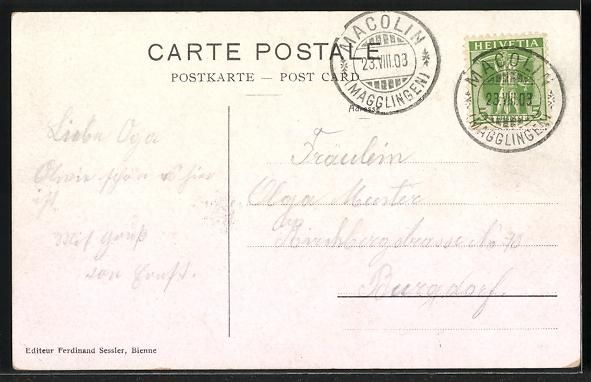 CARTE POSTALE
POSTKARTE — POST CARD
Adresse
MACOLIN
23.VIII.03
(MAGGLINGEN)
HELVETIA
5
MACOLIN
23.VIII.03
(MAGGLINGEN)
Liebe Olga
schön es hier
ist.
Mit Gruß
von Ernst.
Fräulein
Olga Muster
Kirchbergstrasse No 73
Burgdorf.
Editeur Ferdinand Sessler, Bienne